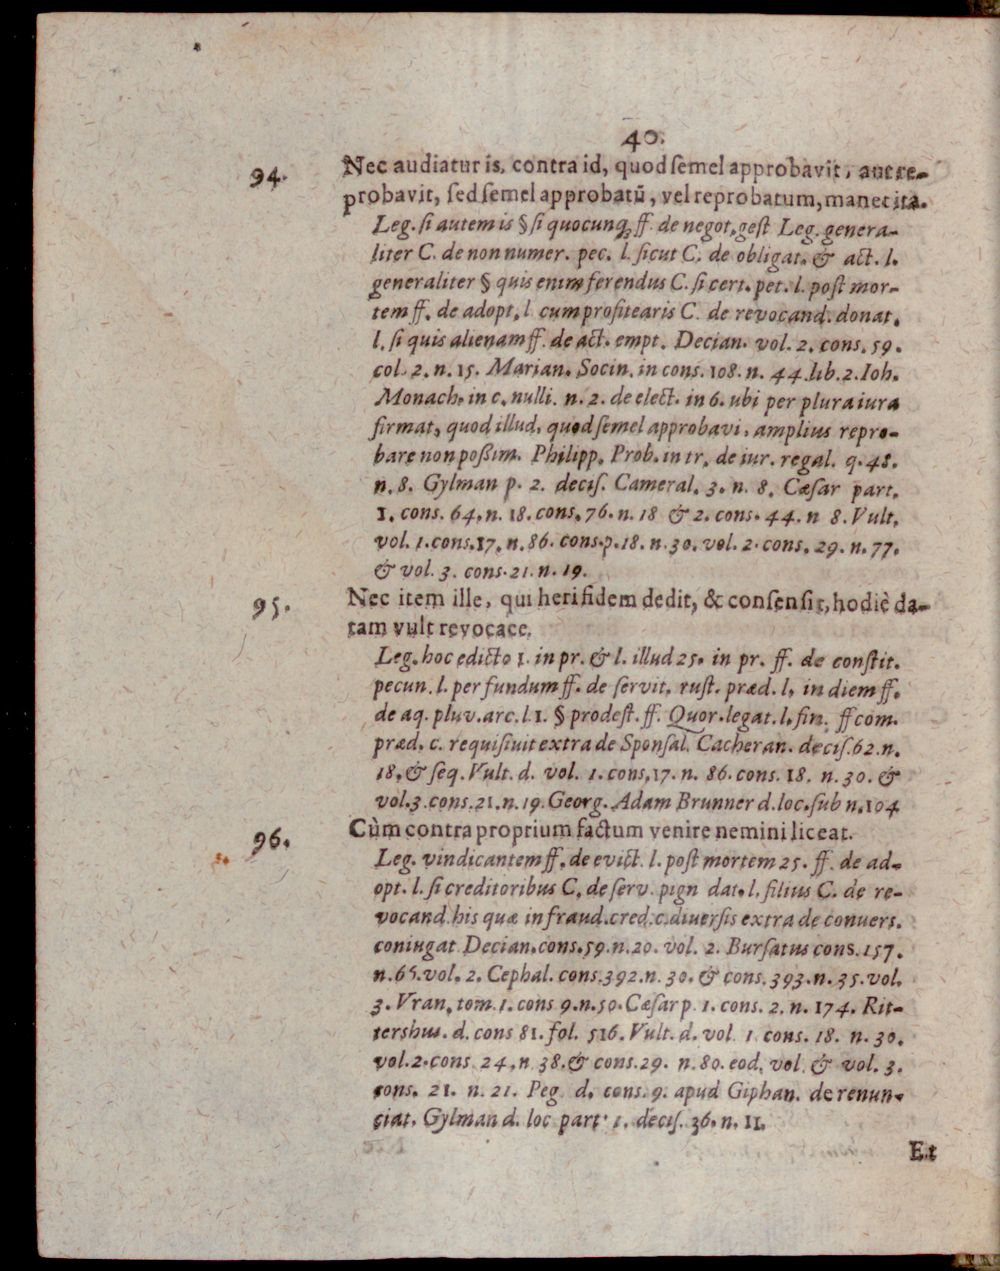 40.
94. Nec audiatur is, contra id, quod semel approbavit, aut re-
probavit, sed semel approbatũ, vel reprobatum, manet ita.
Leg. si autem is § si quocunq; ff. de negot. gest Leg. genera-
liter C. de non numer. pec. l. sicut C. de obligat. & act. l.
generaliter § quis enim ferendus C. si cert. pet. l. post mor-
tem ff. de adopt, l cum profitearis C. de revocand. donat.
l. si quis alienam ff. de act. empt. Decian. vol. 2. cons. 59.
col. 2. n. 15. Marian. Socin. in cons. 108. n. 44. lib. 2. Ioh.
Monach. in c. nulli. n. 2. de elect. in 6. ubi per plura iura
firmat, quod illud, quod semel approbavi, amplius repro-
bare non poßim. Philipp. Prob. in tr. de iur. regal. q. 48.
n. 8. Gylman p. 2. decis. Cameral. 3. n. 8. Cæsar part.
1. cons. 64. n. 18. cons. 76. n. 18 & 2. cons. 44. n 8. Vult.
vol. 1. cons. 17. n. 86. cons. p. 18. n. 30. vol. 2. cons. 29. n. 77.
& vol. 3. cons. 21. n. 19.
95. Nec item ille, qui heri fidem dedit, & consensit, hodiè da-
tam vult revocace.
Leg. hoc edicto 1. in pr. & l. illud 25. in pr. ff. de constit.
pecun. l. per fundum ff. de servit. rust. præd. l. in diem ff.
de aq. pluv. arc. l. 1. § prodest. ff. Quor. legat. l. fin. ff com.
præd. c. requisiuit extra de Sponsal. Cacheran. decis. 62. n.
18. & seq. Vult. d. vol. 1. cons. 17. n. 86. cons. 18. n. 30. &
vol. 3. cons. 21. n. 19. Georg. Adam Brunner d. loc. sub n. 104
96. Cùm contra proprium factum venire nemini liceat.
Leg. vindicantem ff. de evict. l. post mortem 25. ff. de ad-
opt. l. si creditoribus C. de serv. pign dat. l. filius C. de re-
vocand. his quæ in fraud. cred. c. diuersis extra de conuers.
coniugat. Decian. cons. 59. n. 20. vol. 2. Bursatus cons. 157.
n. 65. vol. 2. Cephal. cons. 392. n. 30. & cons. 393. n. 35. vol.
3. Vran. tom. 1. cons 9. n. 50. Cæsar p. 1. cons. 2. n. 174. Rit-
tershus. d. cons 81. fol. 516. Vult. d. vol. 1 cons. 18. n. 30.
vol. 2. cons 24. n 38. & cons. 29. n. 80. eod. vol. & vol. 3.
cons. 21. n. 21. Peg d. cons. 9. apud Giphan. de renun-
ciat. Gylman d. loc part. 1. decis. 36. n. 11.
Et